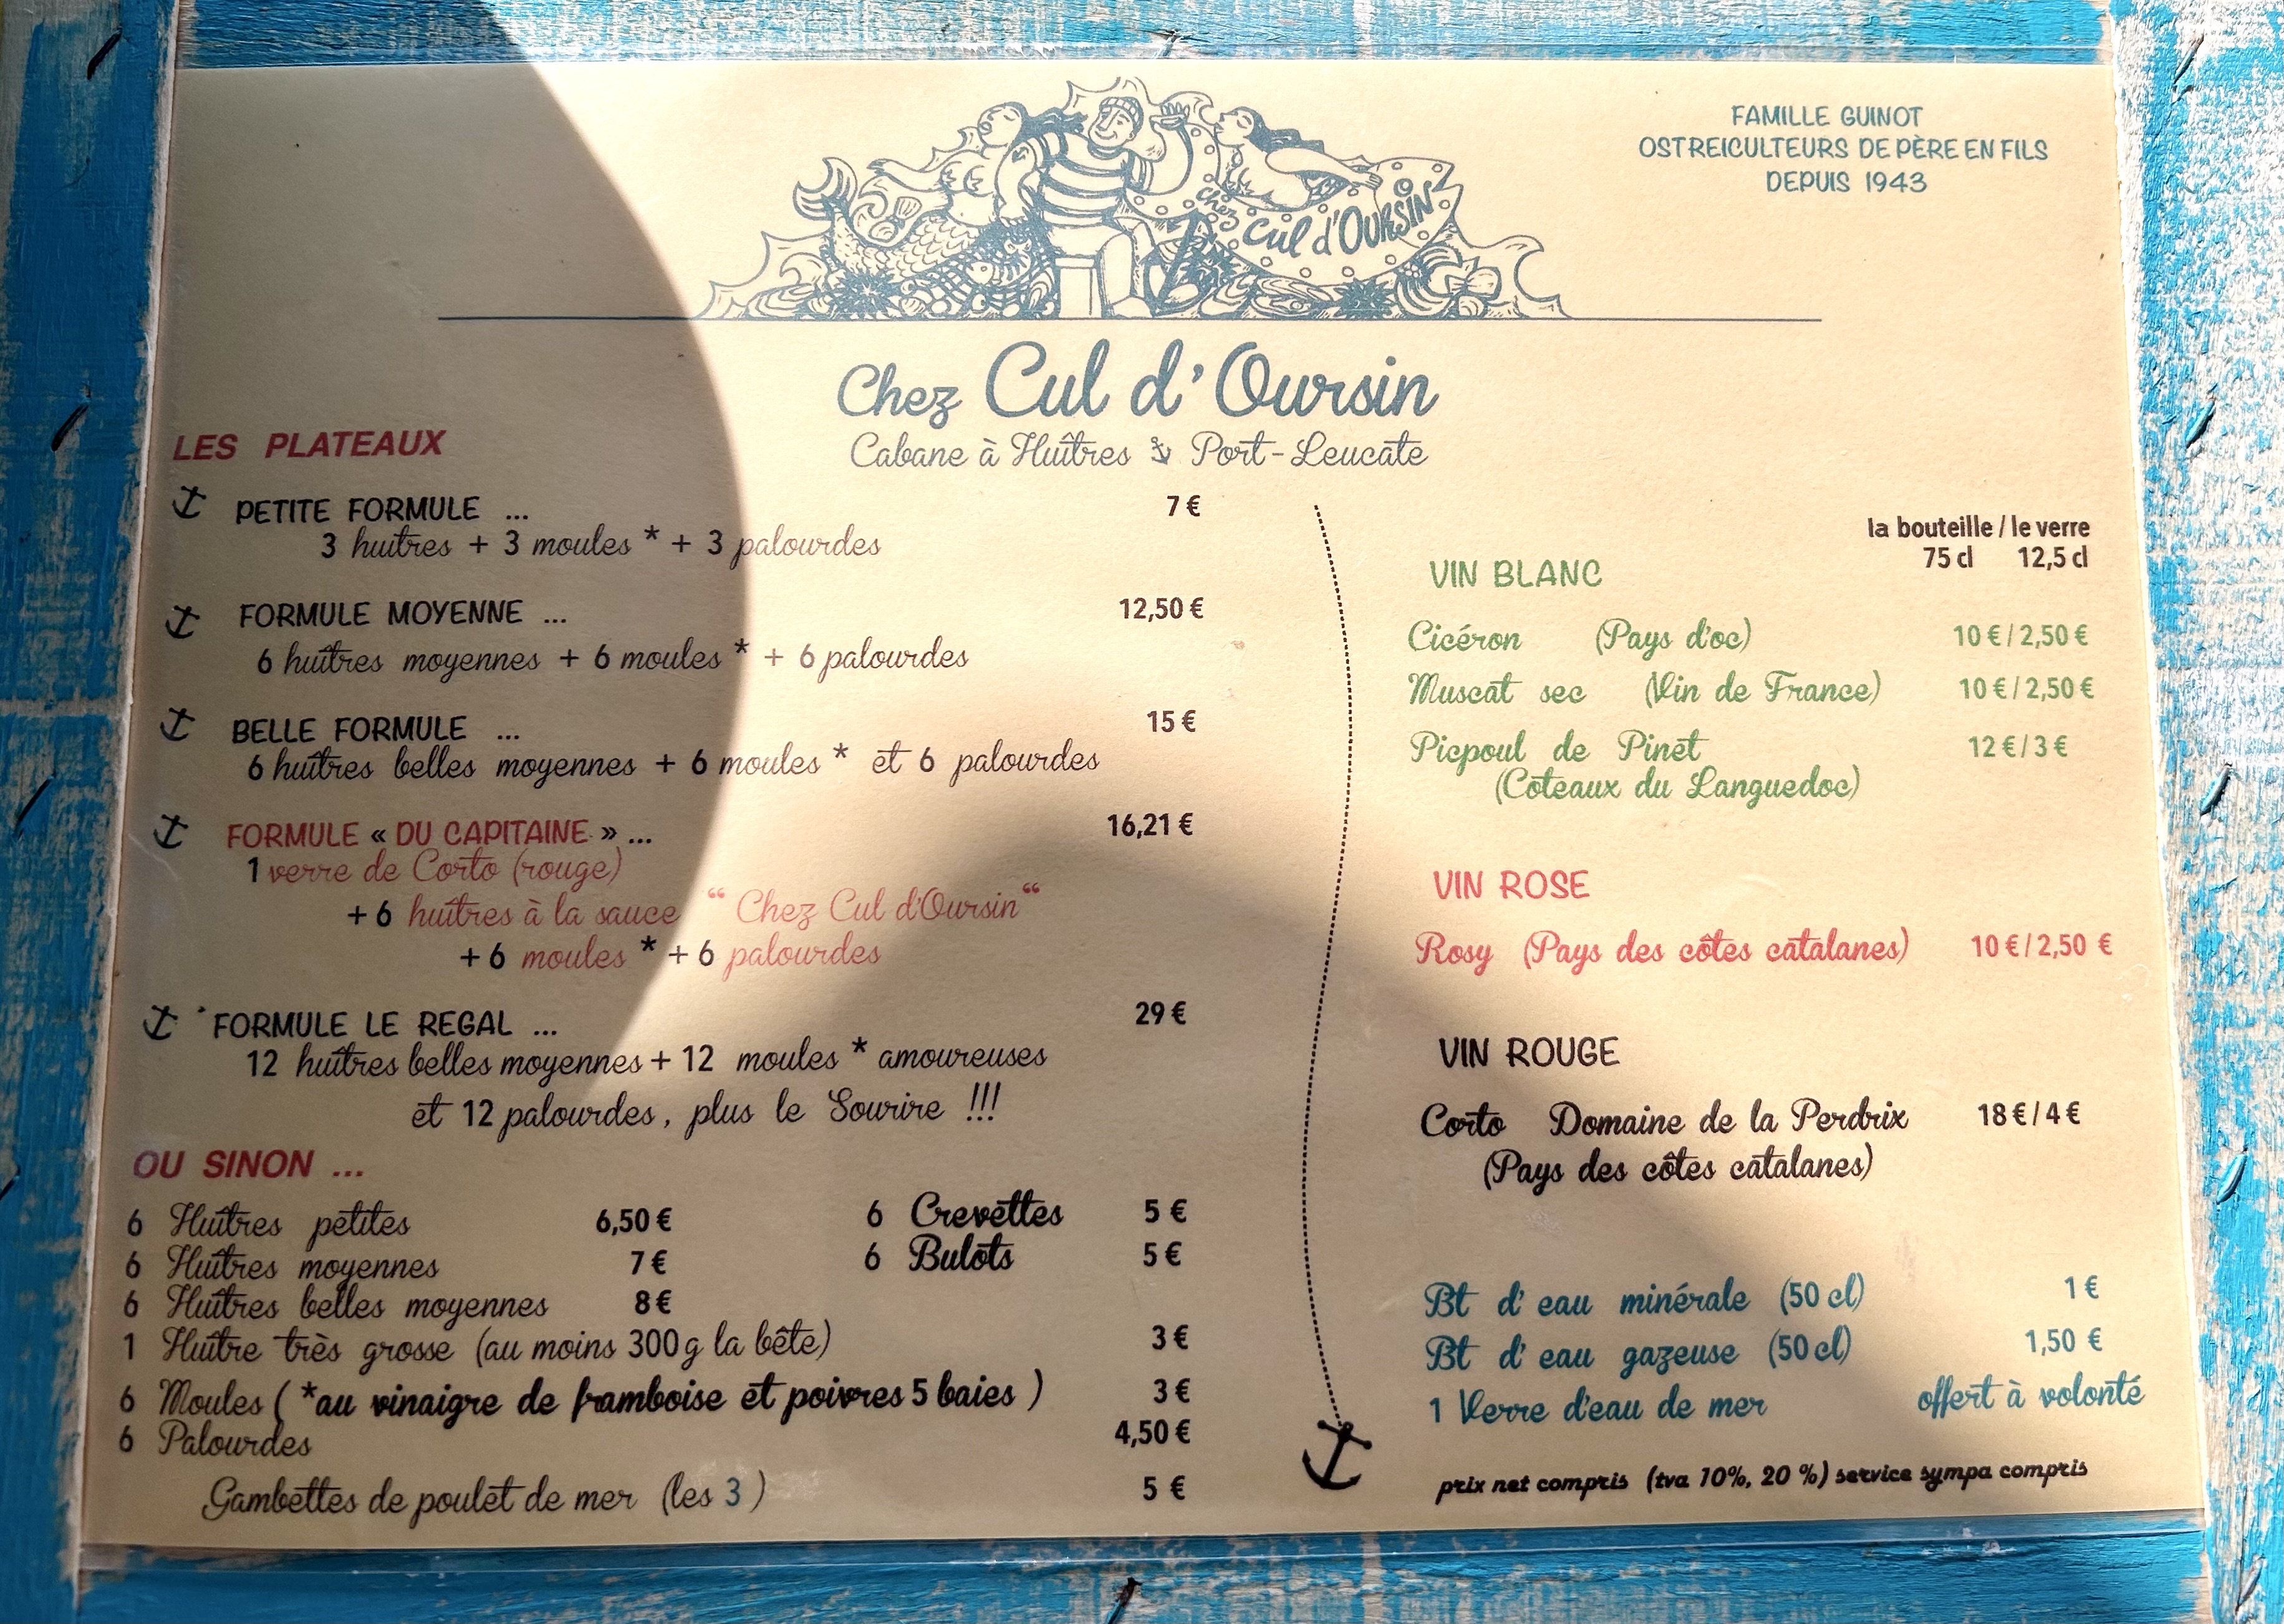 FAMILLE GUINOT
OSTREICULTEURS DE PÈRE EN FILS
DEPUIS 1943
chez Cul d'OURSIN
Chez Cul d'Oursin
Cabane à Huîtres Port-Leucate
LES PLATEAUX
PETITE FORMULE ... 7 €
3 huîtres + 3 moules * + 3 palourdes
FORMULE MOYENNE ... 12,50 €
6 huîtres moyennes + 6 moules * + 6 palourdes
BELLE FORMULE ... 15 €
6 huîtres belles moyennes + 6 moules * et 6 palourdes
FORMULE « DU CAPITAINE » ... 16,21 €
1 verre de Corto (rouge)
+ 6 huîtres à la sauce “ Chez Cul d'Oursin “
+ 6 moules * + 6 palourdes
FORMULE LE REGAL ... 29 €
12 huîtres belles moyennes + 12 moules * amoureuses
et 12 palourdes, plus le Sourire !!!
OU SINON ...
6 Huîtres petites 6,50 €
6 Huîtres moyennes 7 €
6 Huîtres belles moyennes 8 €
6 Crevettes 5 €
6 Bulots 5 €
1 Huître très grosse (au moins 300 g la bête) 3 €
6 Moules ( *au vinaigre de framboise et poivres 5 baies ) 3 €
6 Palourdes 4,50 €
Gambettes de poulet de mer (les 3 ) 5 €
la bouteille / le verre
75 cl 12,5 cl
VIN BLANC
Cicéron (Pays d'oc) 10 € / 2,50 €
Muscat sec (Vin de France) 10 € / 2,50 €
Picpoul de Pinet 12 € / 3 €
(Coteaux du Languedoc)
VIN ROSE
Rosy (Pays des côtes catalanes) 10 € / 2,50 €
VIN ROUGE
Corto Domaine de la Perdrix 18 € / 4 €
(Pays des côtes catalanes)
Bt d' eau minérale (50 cl) 1 €
Bt d' eau gazeuse (50 cl) 1,50 €
1 Verre d'eau de mer offert à volonté
prix net compris (tva 10%, 20 %) service sympa compris